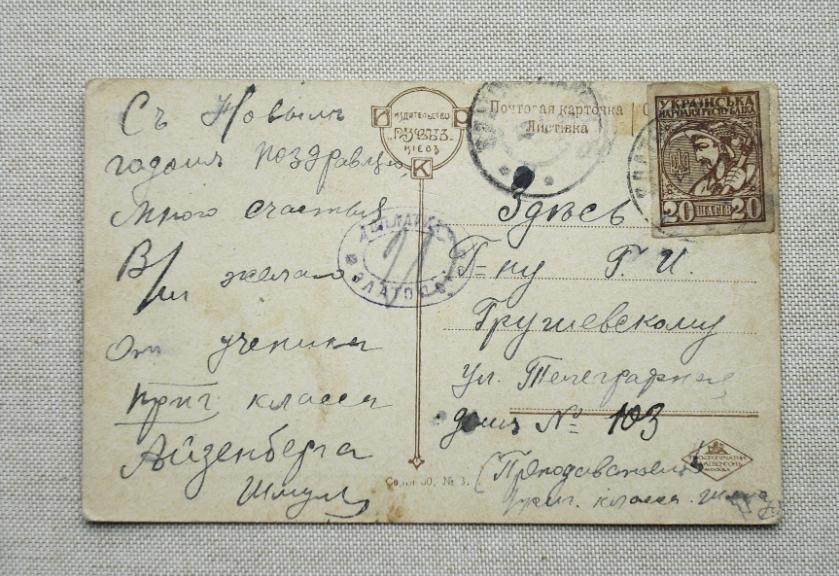 Съ Новымъ
годомъ поздравляю
Много счастья
Вам желаю
От ученика
приг. класса
Айзенберга
Шмуля
ИЗДАТЕЛЬСТВО
РУСЬ
КІЕВЪ
И Р К
Почтовая карточка
Листівка
УКРАЇНСЬКА
НАРОДНЯ РЕСПУБЛІКА
20 ШАГІВ 20
ДОПЛАТИТЬ
ЗЛАТОПОЛЬ
Здѣсь
Г-ну Г. И.
Грушевскому
ул. Телеграфная
домъ № 103
(Преподавателю
приг. класса
№ 3.